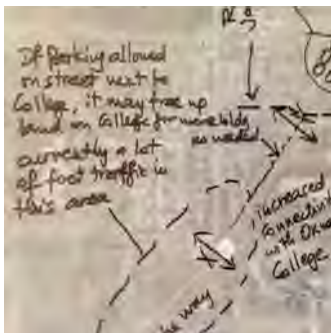 If Parking allowed
on street next to
College, it may free up
land on College for more bldg
as needed
currently a lot
of foot traffic in
this area
increased
with
College
the way